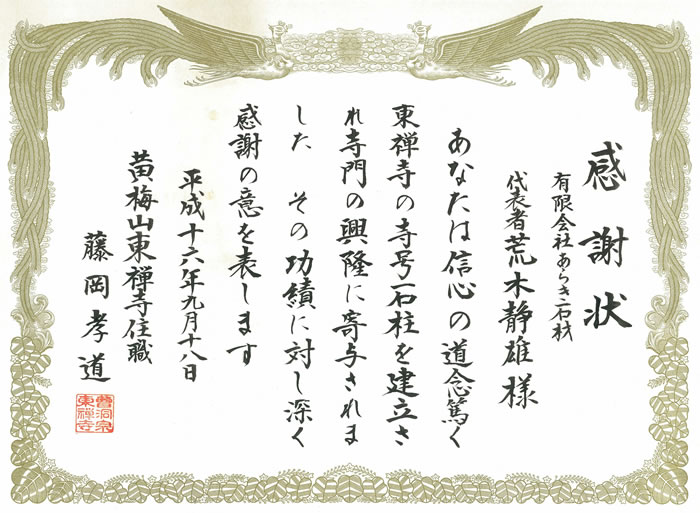 感謝状
有限会社あらき石材
代表者荒木静雄様
あなたは信心の道念篤く
東禅寺の寺号石柱を建立さ
れ寺門の興隆に寄与されま
した その功績に対し深く
感謝の意を表します
平成十六年九月十八日
黄梅山東禅寺住職
藤岡孝道
曹洞宗
東禅寺